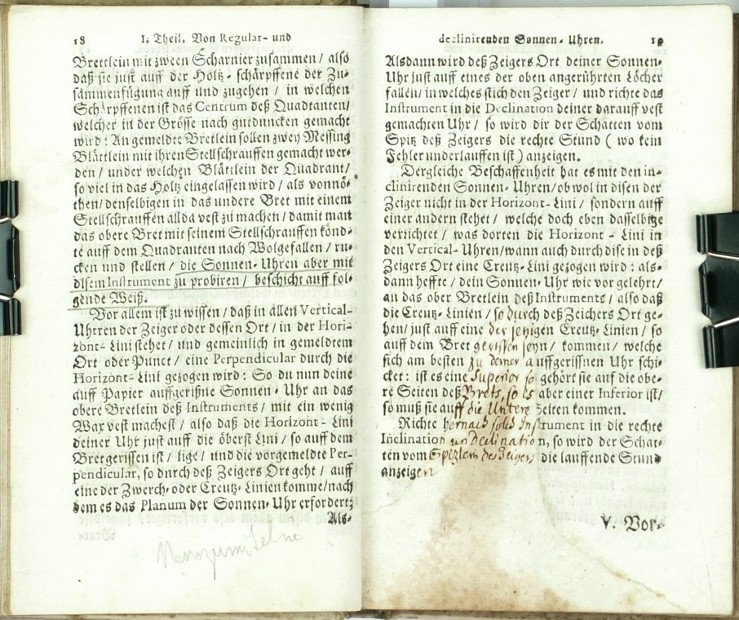 18 I. Theil. Von Regular- und
Brettlein mit zween Scharnier zusammen / also
daß sie just auff der Holtz-schärpffene der Zu-
sammenfügung auff und zugehen / in welchen
Schärpffenen ist das Centrum deß Quadranten /
welcher in der Grösse nach gutduncken gemacht
wird: An gemeldte Bretlein sollen zwey Messing
Blättlein mit ihren Stellschrauffen gemacht wer-
den / under welchen Blättlein der Quadrant /
so viel in das Holtz eingelassen wird / als vonnö-
then / denselbigen in das undere Bret mit einem
Stellschrauffen allda vest zu machen / damit man
das obere Bret mit seinem Stellschrauffen könd-
te auff dem Quadranten nach Wolgefallen / ru-
cken und stellen / die Sonnen-Uhren aber mit
disem Instrument zu probiren / beschicht auff fol-
gende Weiß.
Vor allem ist zu wissen / daß in allen Vertical-
Uhren der Zeiger oder dessen Ort / in der Hori-
zont-Lini stehet / und gemeinlich in gemeldtem
Ort oder Punct / eine Perpendicular durch die
Horizont-Lini gezogen wird: So du nun deine
auff Papier auffgerißne Sonnen-Uhr an das
obere Bretlein deß Instruments / mit ein wenig
Wax vest machest / also daß die Horizont-Lini
deiner Uhr just auff die öberst Lini / so auff dem
Bret gerissen ist / lige / und die vorgemeldte Per-
pendicular, so durch deß Zeigers Ort geht / auff
eine der Zwerch-oder Creutz-Linien komme / nach
dem es das Planum der Sonnen-Uhr erfordert;
Als-
declinirenden Sonnen-Uhren. 19
Alsdann wird deß Zeigers Ort deiner Sonnen-
Uhr just auff eines der oben angerührten Löcher
fallen / in welches stich den Zeiger / und richte das
Instrument in die Declination deiner darauff vest
gemachten Uhr / so wird dir der Schatten vom
Spitz deß Zeigers die rechte Stund (wo kein
Fehler underlauffen ist) anzeigen.
Dergleiche Beschaffenheit hat es mit den in-
clinirenden Sonnen-Uhren / ob wol in disen der
Zeiger nicht in der Horizont-Lini / sondern auff
einer andern stehet / welche doch eben dasselbige
verrichtet / was dorten die Horizont-Lini in
den Vertical-Uhren / wann auch durch dise in deß
Zeigers Ort eine Creutz-Lini gezogen wird: als-
dann heffte / dein Sonnen-Uhr wie vor gelehrt /
an das ober Bretlein deß Instruments / also daß
die Creutz-Linien / so durch deß Zeichers Ort ge-
hen / just auff eine der jenigen Creutz-Linien / so
auff dem Bret gerissen seyn / kommen / welche
sich am besten zu deiner auffgerißnen Uhr schi-
cket: ist es eine Superior so gehört sie auff die obe-
re Seiten deß Brets, so es aber einer Inferior ist /
so muß sie auff die Untere Seiten kommen.
Richte hernach solch Instrument in die rechte
Inclination und Declination, so wird der Schat-
ten vom Spizlein des Zeigers die lauffende Stund
anzeigen.
V. Vor-